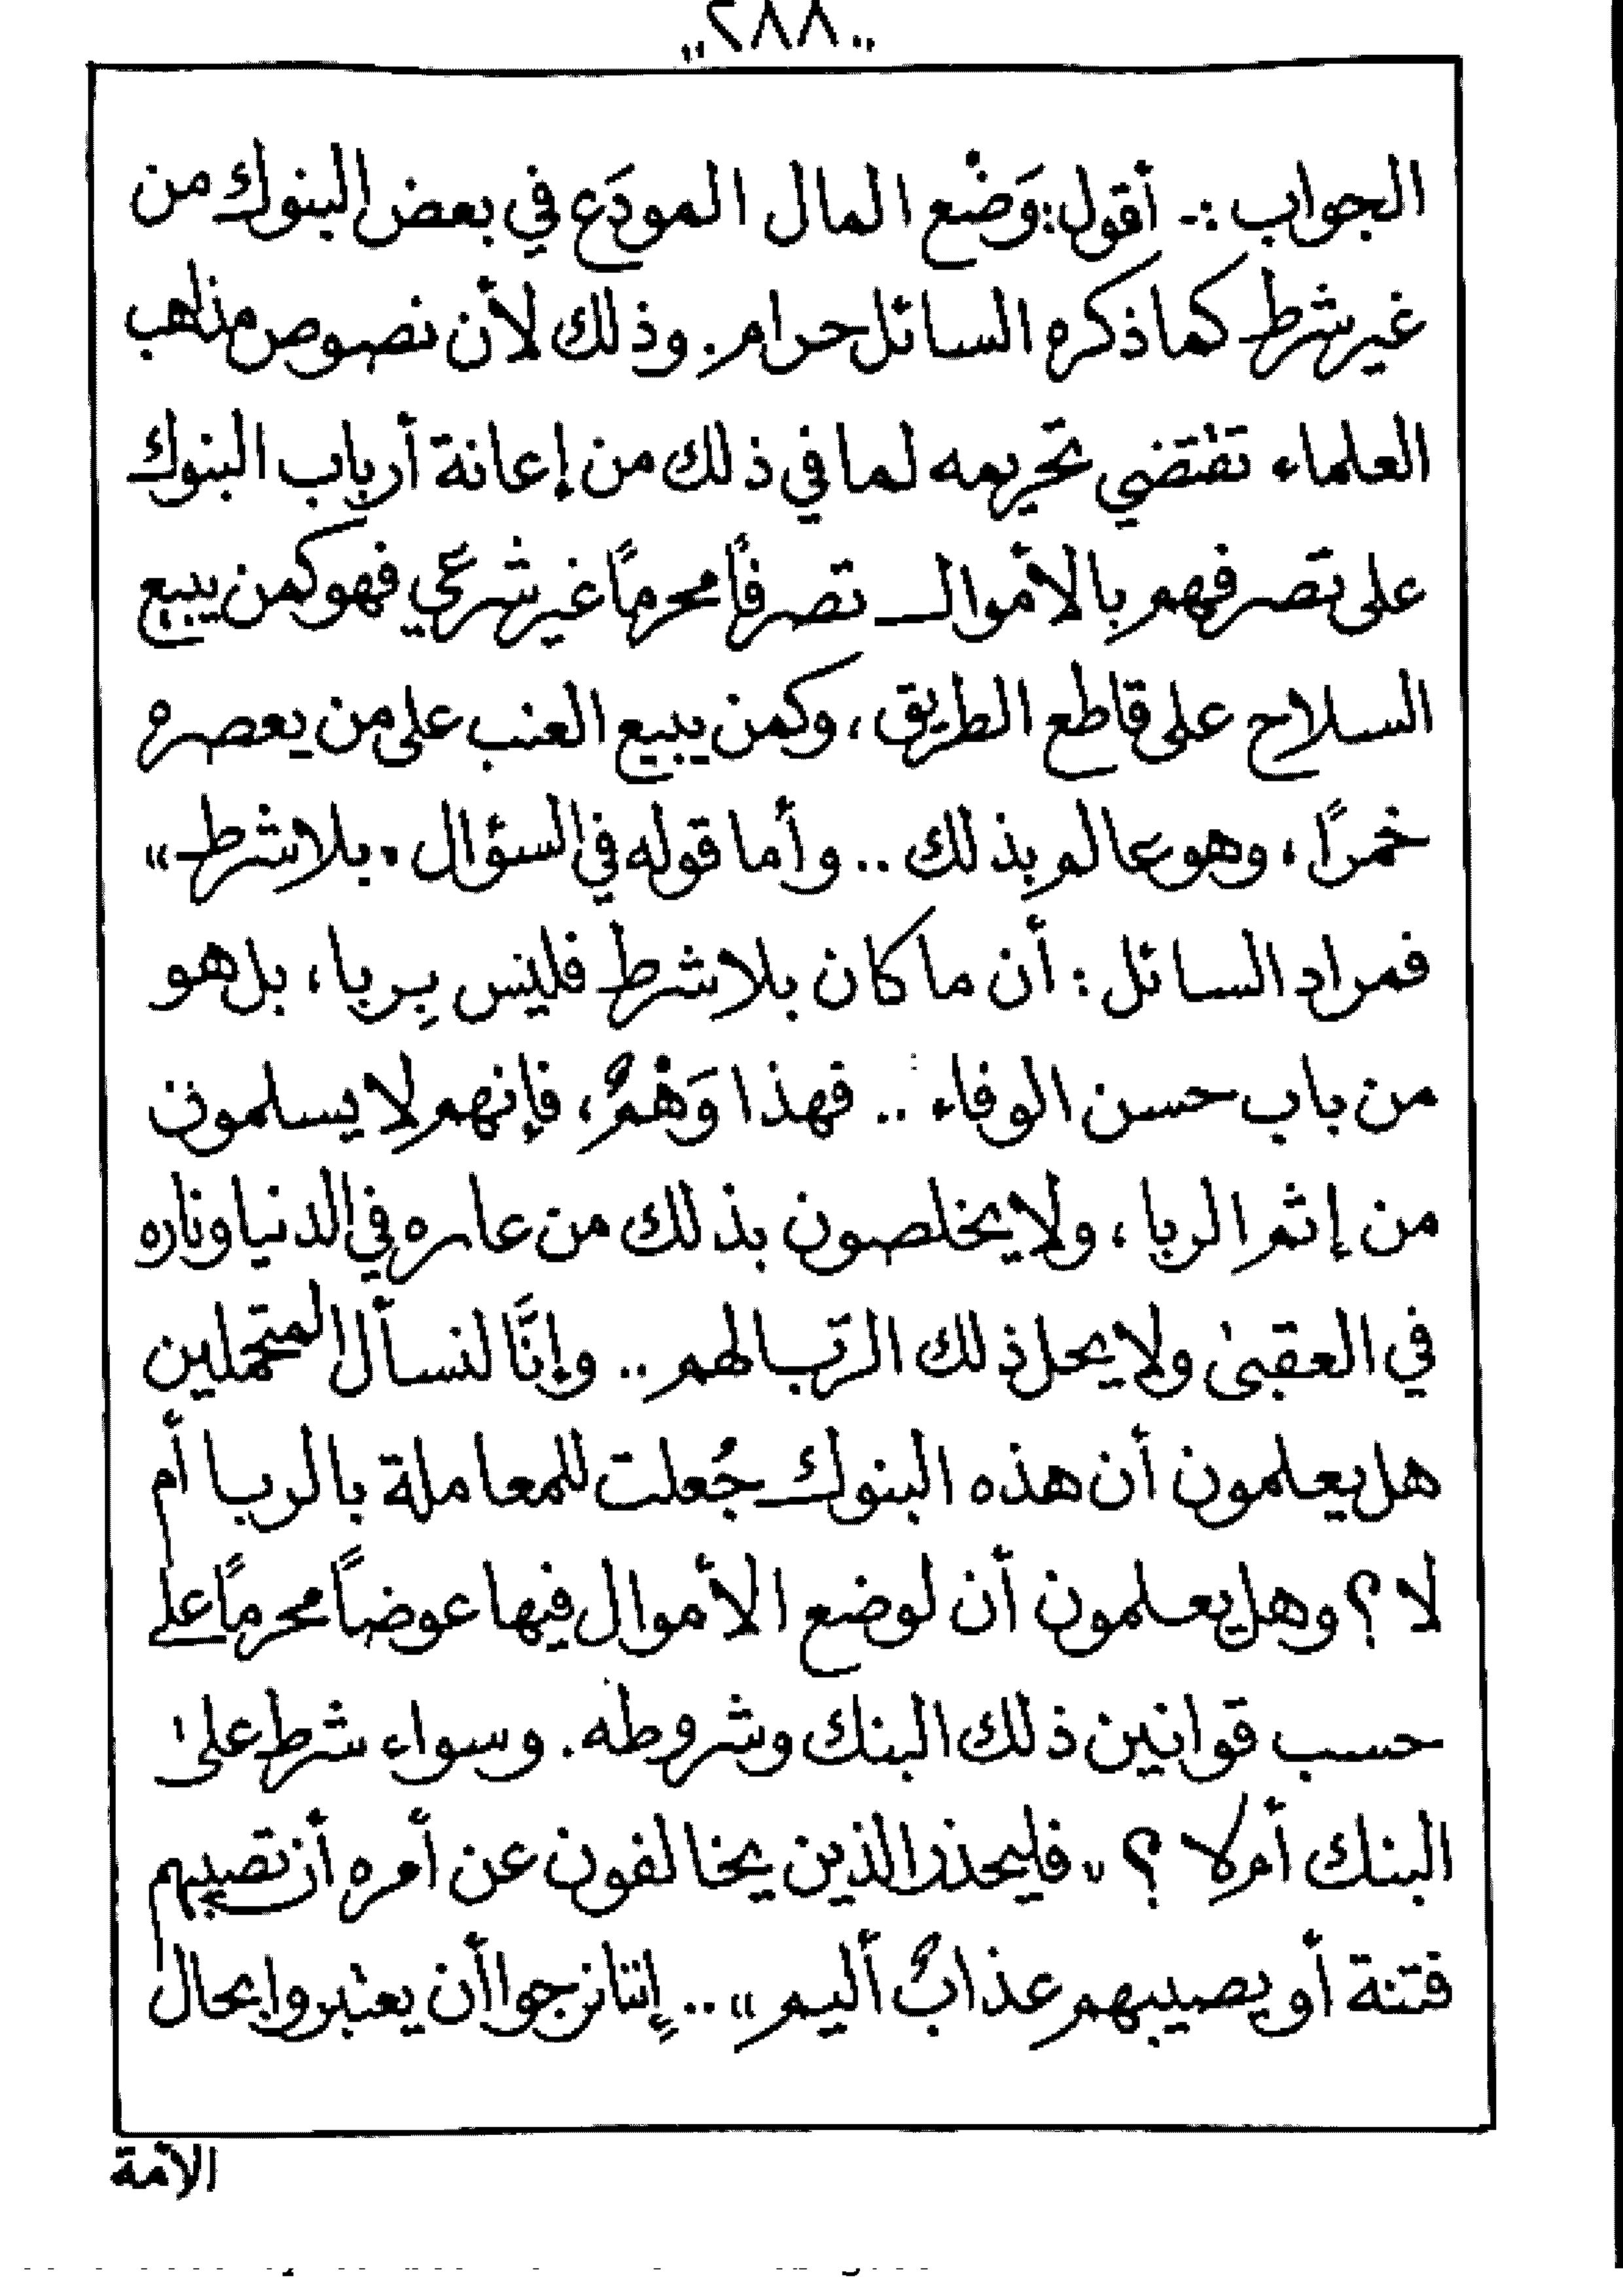 ,,٢٨٨,,
الجواب :- أقول: وَضْع المال المودَع في بعض البنوك من
غير شرط كما ذكره السائل حرام. وذلك لأن نصوص مذاهب
العلماء تقتضي تحريمه لما في ذلك من إعانة أرباب البنوك
على تصرفهم بالأموال تصرفاً محرماً غير شرعي فهو كمن يبيع
السلاح على قاطع الطريق، وكمن يبيع العنب على من يعصره
خمرًا، وهو عالم بذلك .. وأما قوله في السؤال "بلا شرط"
فمراد السائل: أن ما كان بلا شرط فليس بِربا، بل هو
من باب حسن الوفاء .. فهذا وَهْمٌ، فإنهم لا يسلمون
من إثم الربا، ولا يخلصون بذلك من عاره في الدنيا وناره
في العقبىٰ ولا يحل ذلك الربا لهم .. وإنَّا لنسأل المتحملين
هل يعلمون أن هذه البنوك جُعلت للمعاملة بالربا أم
لا؟ وهل يعلمون أن لوضع الأموال فيها عوضاً محرماً على
حسب قوانين ذلك البنك وشروطه. وسواء شرط علىٰ
البنك أم لا؟ "فليحذر الذين يخالفون عن أمره أن تصيبهم
فتنة أو يصيبهم عذابٌ أليم" .. إننا نرجوا أن يعتبروا بحال
الأمة